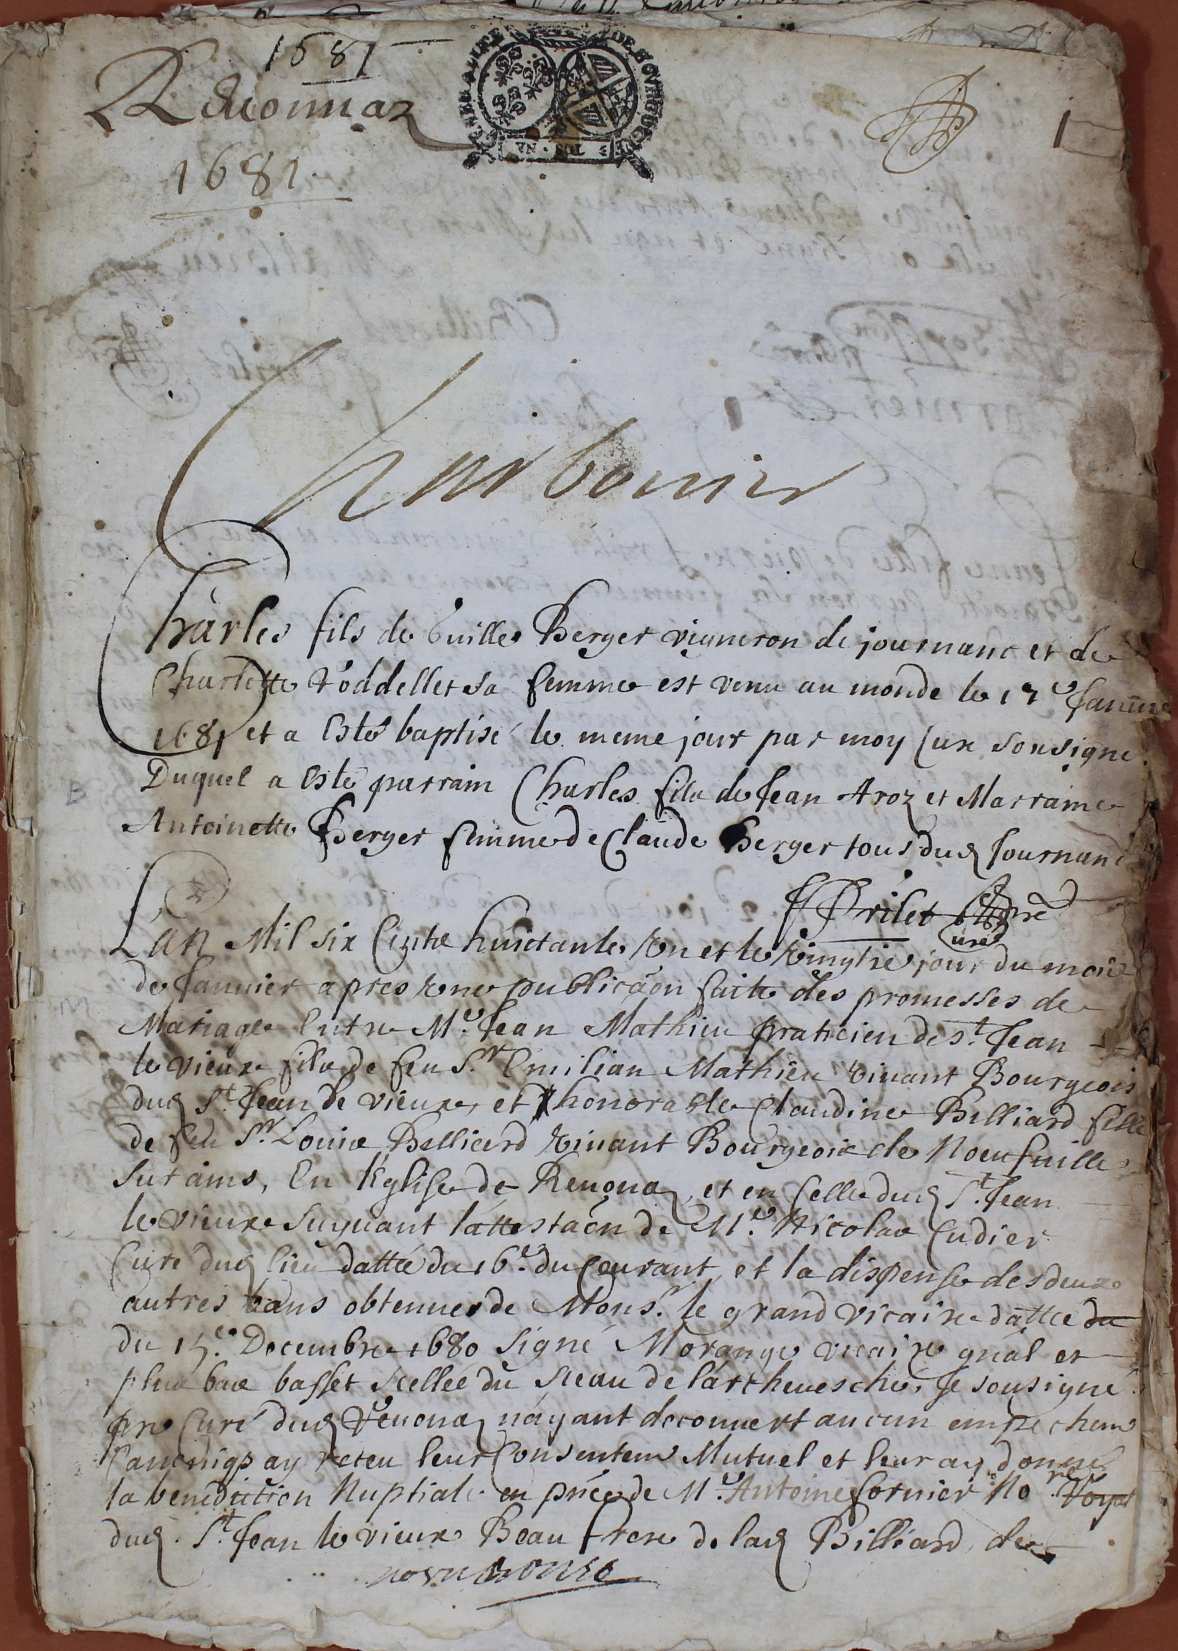 1681
Reuonnaz
1681
1
Charbonier
Charles fils de Guille Berger vigneron de journanc et de
Charlotte Voddellet sa femme est venu au monde le 17e Januie
1681 et a esté baptisé le meme jour par moy Cure sousigne
Duquel a esté parrain Charles fils de Jean Aroz et Marraine
Antoinette Berger femme de Claude Berger tous dud Journanc
Brilet pre
curé
L'an Mil six Cents huictante vn et le vingtie jour du mois
de Januier apres vne publicaon faite des promesses de
Mariage Entre Me Jean Mathieu praticien de St Jean
le vieux fils de feu Sr Emilian Mathieu viuant Bourgeois
dud St Jean le vieux, et honorable Claudine Billiard fille
de feu Sr Louis Belliard viuant Bourgeois de Noeufuille
sur ains, En l'Eglise de Reuona, et en Celle dud St Jean
le vieux suyuant lattestaon de Mre Nicolas Cudier
Curé dud lieu dattée du 16e du Courant, et la dispense des deux
autres bans obtenues de Monsr le grand vicaire dattée du
du 15e Decembre 1680 signé Morange vicaire gnal et
plus bas basset scellée du sceau de l'archeuesché, Je sousigne
pre Curé dud Reuona n'ayant decouuert aucun empechem
Canoniq ay receu leur Consentem Mutuel et leur ay donné
la benediction Nuptiale en pnce de Me Antoine fornier No Royal
dud St Jean le vieux Beau frere de lad Billiard, de